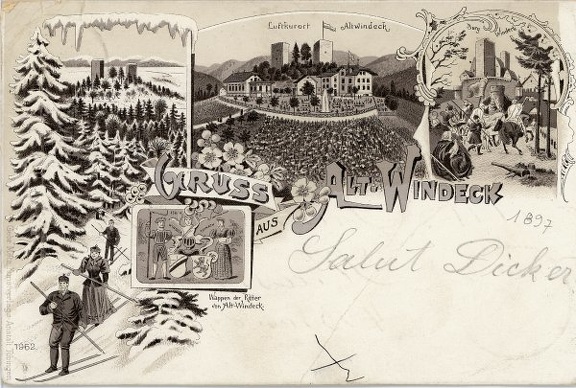 Luftkurort Altwindeck.
Burg Windeck
GRUSS
AUS
ALT-WINDECK
1897
Salut Dicker
Wappen der Ritter
von Alt-Windeck.
1962